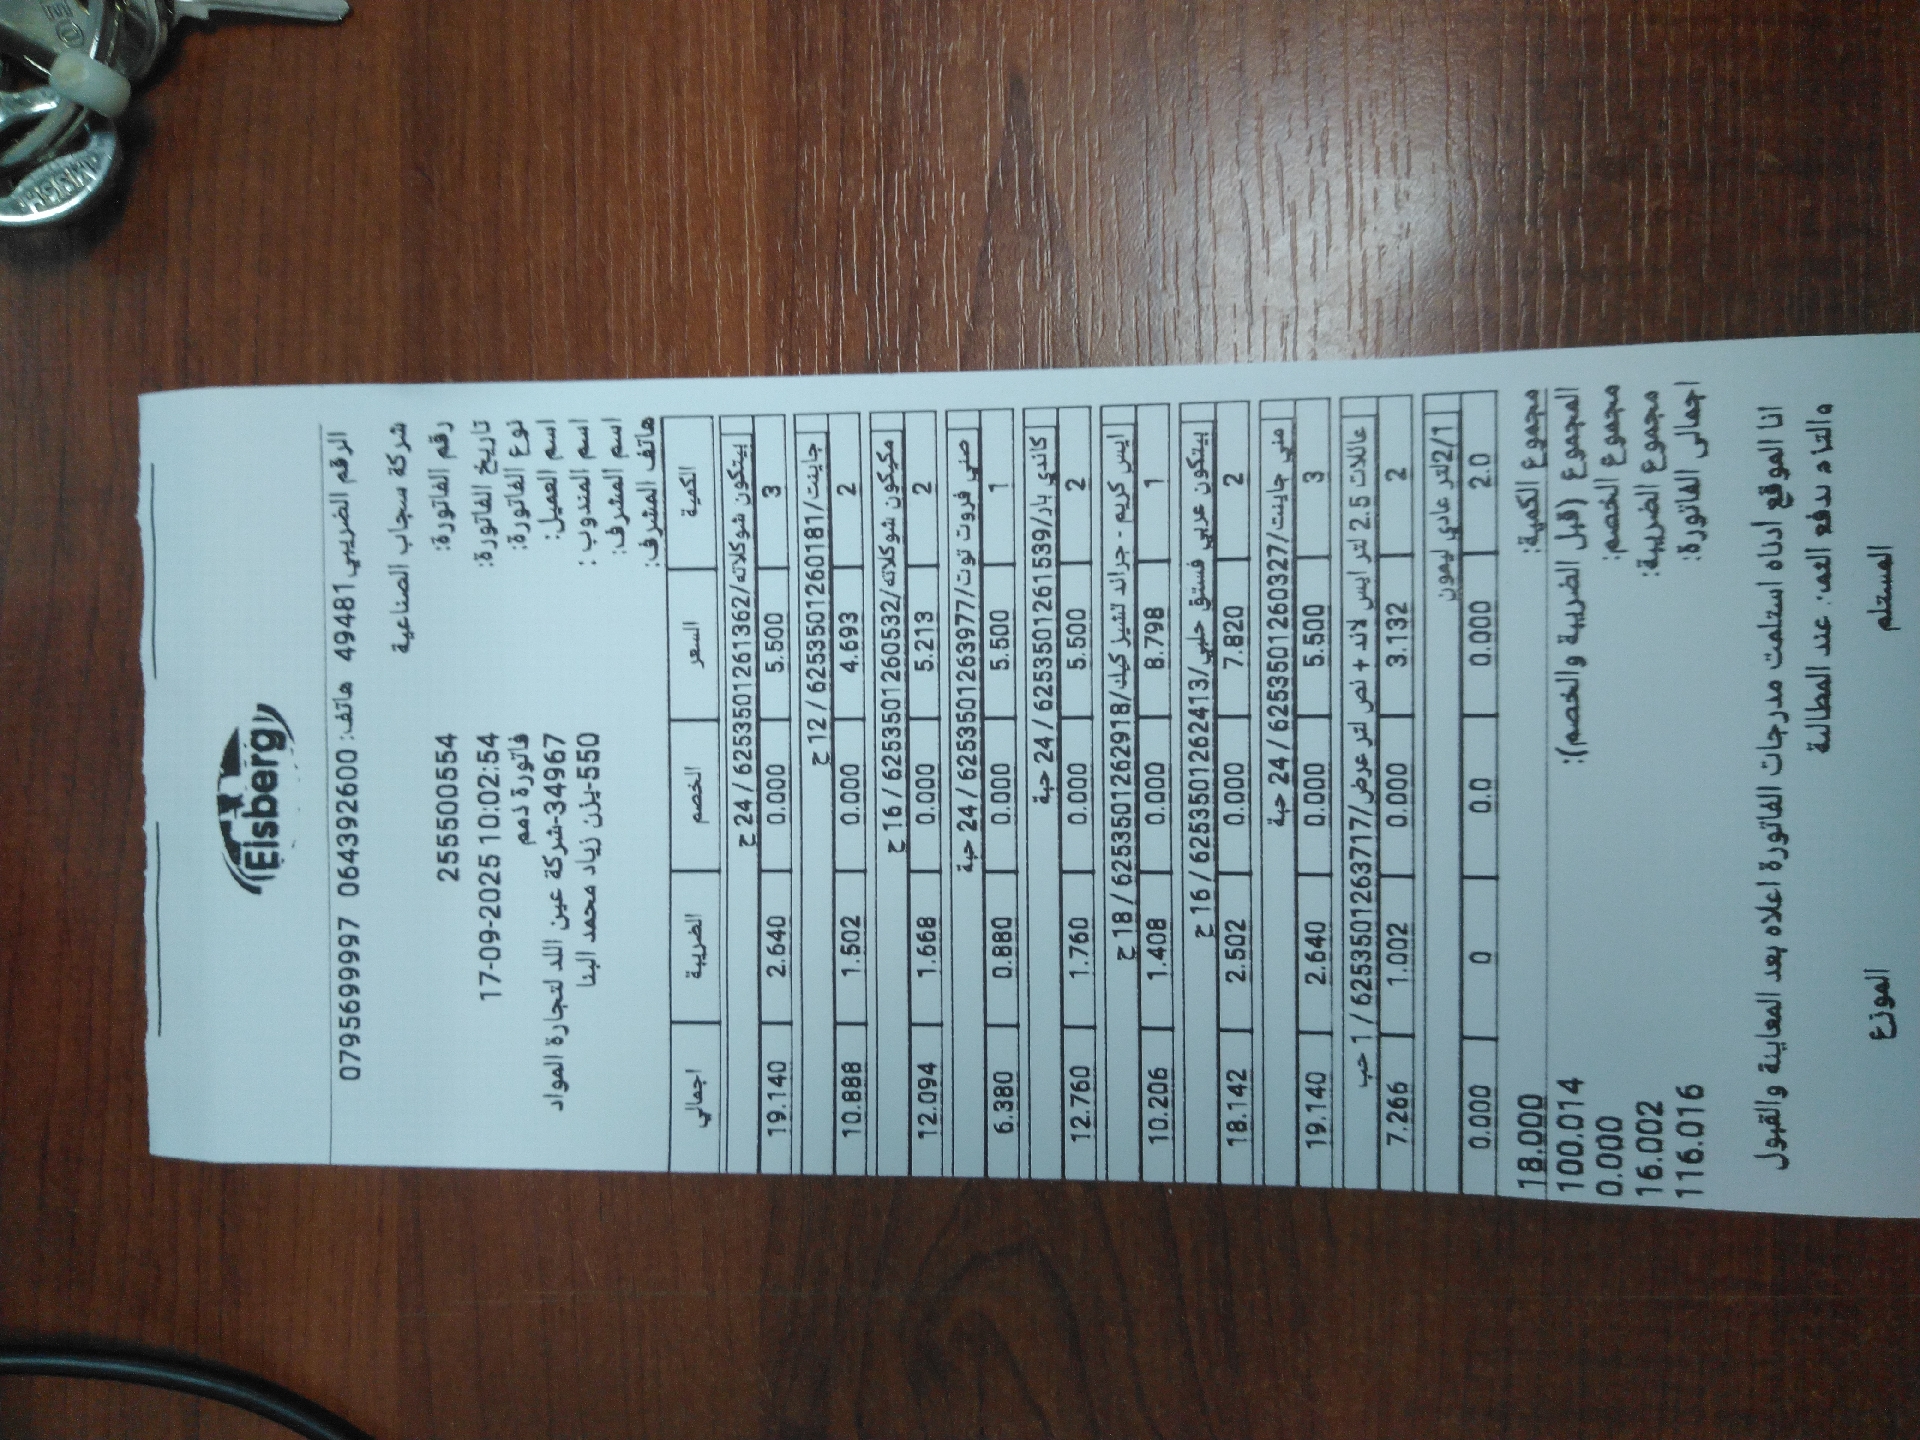 Eisberg
الرقم الضريبي 49481 هاتف: 064392600 0795699997
شركة سحاب الصناعية
رقم الفاتورة: 255500554
تاريخ الفاتورة: 17-09-2025 10:02:54
نوع الفاتورة: فاتورة ذمم
اسم العميل: 34967-شركة عين اللد لتجارة المواد
اسم المندوب: 550-يزن زياد محمد البنا
اسم المشرف:
هاتف المشرف:
الكمية السعر الخصم الضريبة اجمالي
بيتكون شوكلاته/6253501261362 / 24 ح
3 5.500 0.000 2.640 19.140
جاينت/6253501260181 / 12 ح
2 4.693 0.000 1.502 10.888
مكيكون شوكلاته/6253501260532 / 16 ح
2 5.213 0.000 1.668 12.094
صني فروت توت/6253501263977 / 24 حبة
1 5.500 0.000 0.880 6.380
كاندي بار/6253501261539 / 24 حبة
2 5.500 0.000 1.760 12.760
ايس كريم - جراند تشيز كيك/6253501262918 / 18 ح
1 8.798 0.000 1.408 10.206
بيتكون عربي فستق حلبي/6253501262413 / 16 ح
2 7.820 0.000 2.502 18.142
مني جاينت/6253501260327 / 24 حبة
3 5.500 0.000 2.640 19.140
عائلات 2.5 لتر ايس لاند + نص لتر عرض/6253501263717 / 1 حب
2 3.132 0.000 1.002 7.266
2/1لتر عادي ليمون
2.0 0.000 0.0 0 0.000
مجموع الكمية: 18.000
المجموع (قبل الضريبة والخصم): 100.014
مجموع الخصم: 0.000
مجموع الضريبة: 16.002
اجمالي الفاتورة: 116.016
انا الموقع ادناه استلمت مدرجات الفاتورة اعلاه بعد المعاينة والقبول
بدفع عند المطالبة
المستلم الموزع